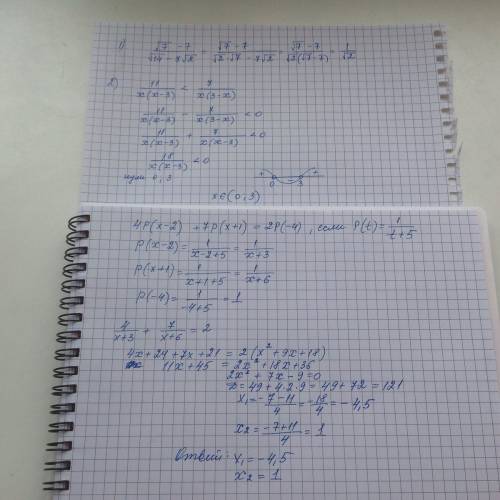 1) (√7 - 7)/(√14 - 7√2) = (√7 - 7)/(√2·√7 - 7√2) = (√7 - 7)/(√2(√7-7)) = 1/√2
2) 11/(x(x-3)) < 7/(x(3-x))
11/(x(x-3)) - 7/(x(3-x)) < 0
11/(x(x-3)) + 7/(x(x-3)) < 0
18/(x(x-3)) < 0
нули 0, 3
+ 0 - 3 +
x∈(0;3)
4P(x-2) + 7P(x+1) = 2P(-4), если P(t) = 1/(t+5)
P(x-2) = 1/(x-2+5) = 1/(x+3)
P(x+1) = 1/(x+1+5) = 1/(x+6)
P(-4) = 1/(-4+5) = 1
4/(x+3) + 7/(x+6) = 2
4x+24+7x+21 = 2(x²+9x+18)
11x+45 = 2x²+18x+36
2x²+7x-9=0
D=49+4·2·9=49+72=121
x₁ = (-7-11)/4 = -18/4 = -4,5
x₂ = (-7+11)/4 = 1
Ответ: x₁ = -4,5
x₂ = 1